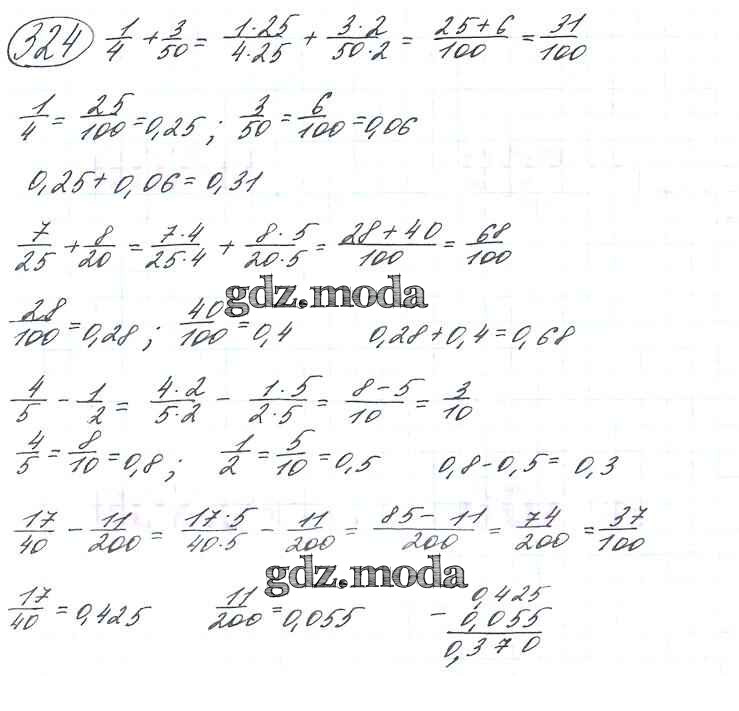 324 1/4 + 3/50 = 1·25/4·25 + 3·2/50·2 = 25+6/100 = 31/100
1/4 = 25/100 = 0,25; 3/50 = 6/100 = 0,06
0,25 + 0,06 = 0,31
7/25 + 8/20 = 7·4/25·4 + 8·5/20·5 = 28+40/100 = 68/100
gdz.moda
28/100 = 0,28; 40/100 = 0,4 0,28+0,4=0,68
4/5 - 1/2 = 4·2/5·2 - 1·5/2·5 = 8-5/10 = 3/10
4/5 = 8/10 = 0,8; 1/2 = 5/10 = 0,5 0,8-0,5= 0,3
17/40 - 11/200 = 17·5/40·5 - 11/200 = 85-11/200 = 74/200 = 37/100
gdz.moda
17/40 = 0,425 11/200 = 0,055 - 0,425
0,055
0,370